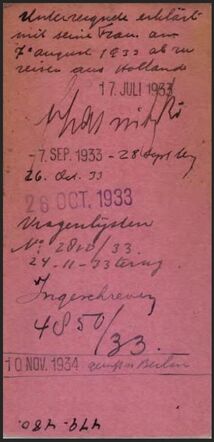 Unterzeignde erklärt
mit seine Frau am
7e August 1933 ab zu
reisen aus Holland
17 JULI 1933
7. SEP. 1933 - 28 Sept
26. Oct. 33
26 OCT. 1933
Vragenlijsten
No. 2800/33
24-11-33 terug
Ingeschreven
4850/33.
10 NOV. 1934 Berlin
479-480